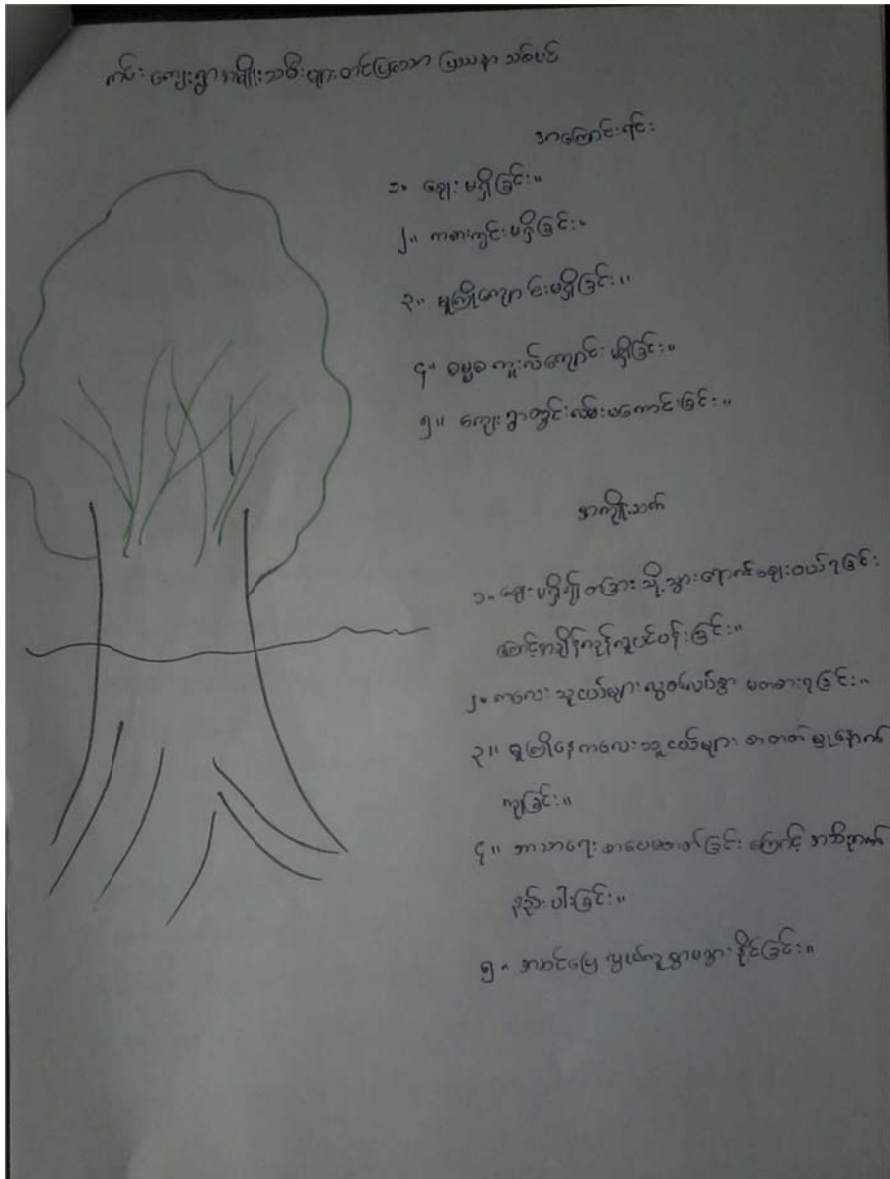 ကင်း ကျေးရွာအမျိုးသမီးများတင်ပြသော ပြဿနာ သစ်ပင်
အကြောင်းရင်း
၁။ ဈေး မရှိခြင်း။
၂။ ကစားကွင်းမရှိခြင်း။
၃။ မူကြိုကျောင်းမရှိခြင်း။
၄။ ဓမ္မစကူးလ်ကျောင်း မရှိခြင်း။
၅။ ကျေးရွာတွင်းလမ်းမကောင်းခြင်း။
အကျိုးဆက်
၁။ ဈေးမရှိ၍ တခြား သို့သွားရောက်ဈေးဝယ်ရခြင်း
ကြောင့်အချိန်ကုန်လူပင်ပန်းခြင်း။
၂။ ကလေး သူငယ်များ လွတ်လပ်စွာ မကစားရခြင်း။
၃။ မူကြိုနေကလေးသူငယ်များ စာတတ်မှုနောက်
ကျခြင်း။
၄။ ဘာသာရေး စာပေမတတ်ခြင်း ကြောင့်
နည်းပါးခြင်း။
၅။ အဆင်ပြေ လွယ်ကူစွာမသွားနိုင်ခြင်း။